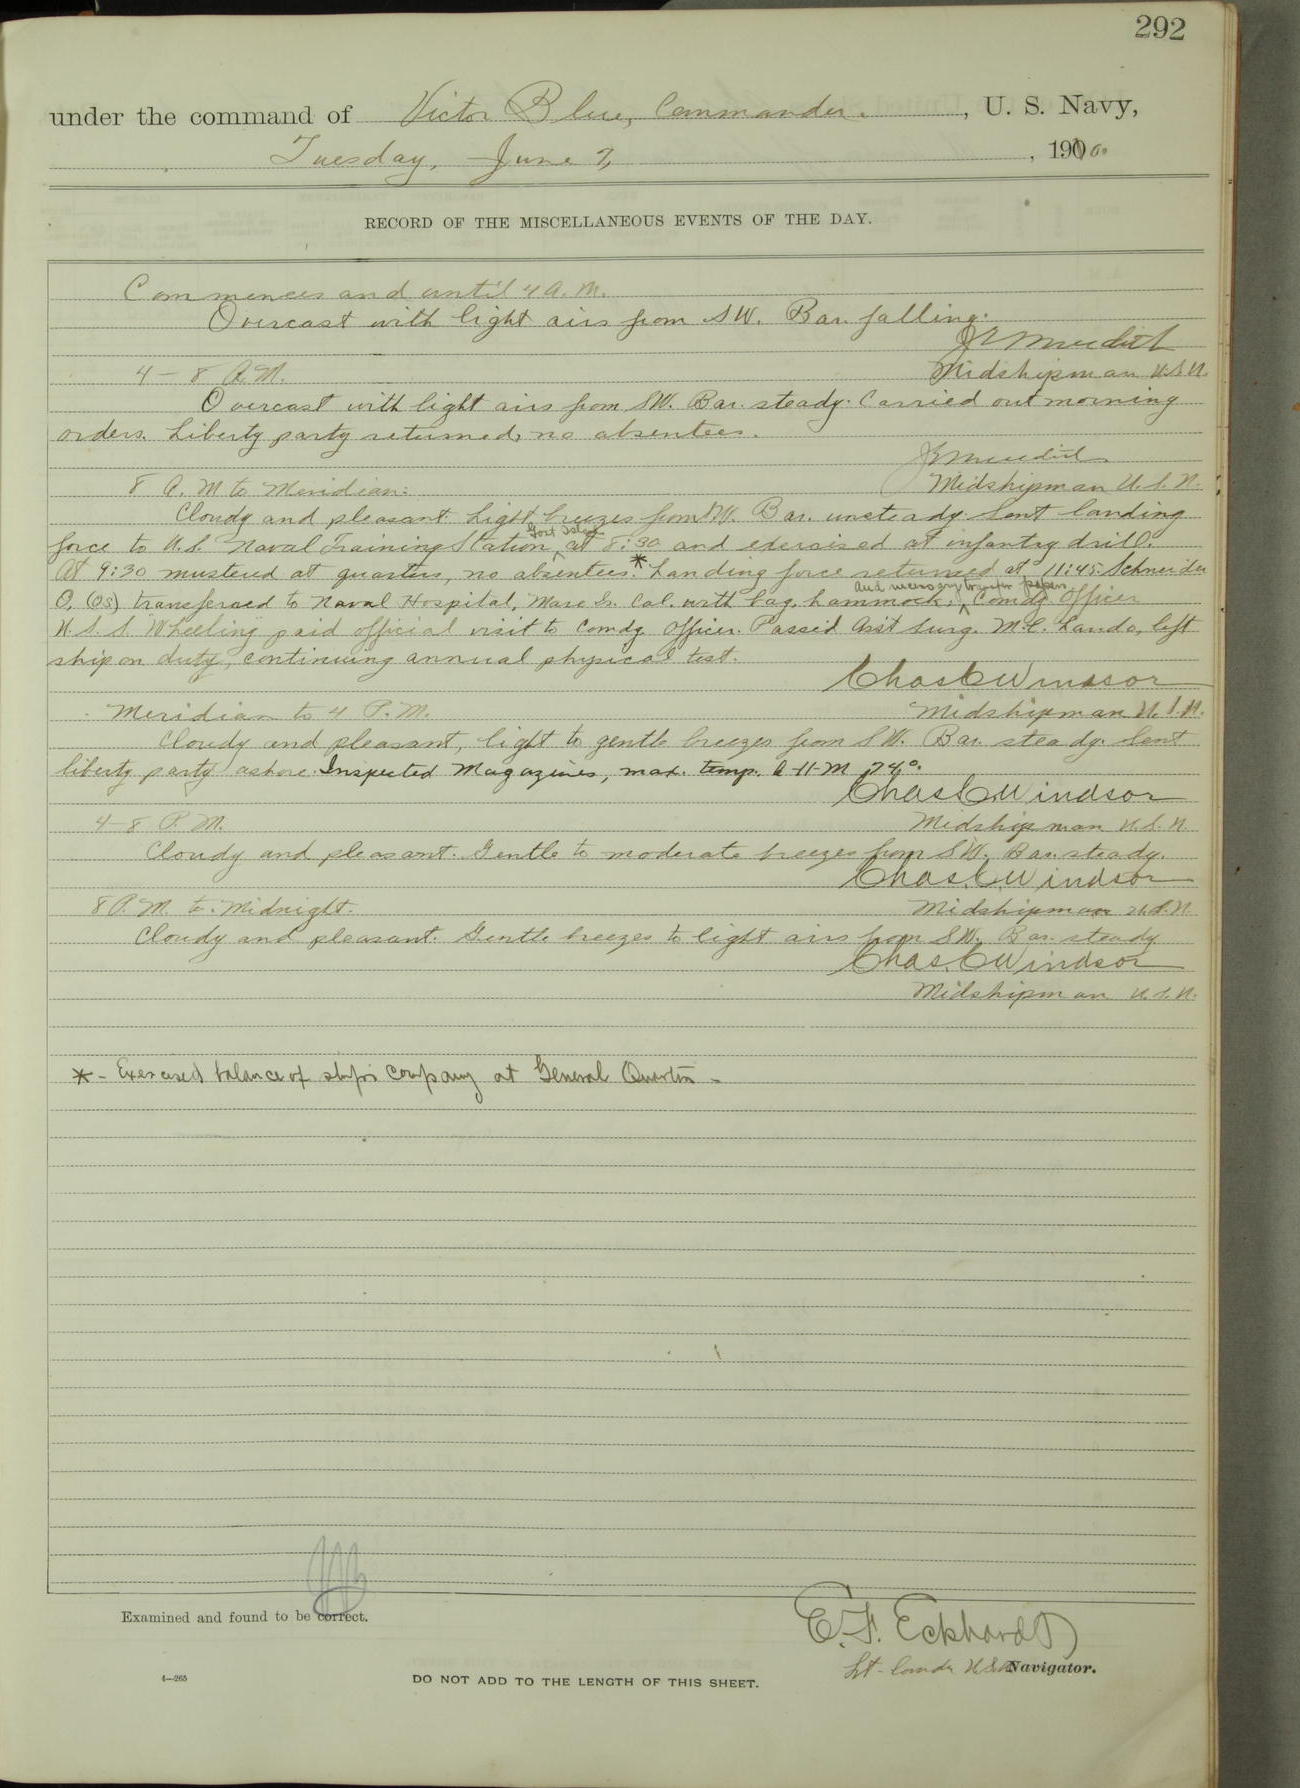 292
under the command of Victor Blue, Commander. , U. S. Navy,
Tuesday, June 7, , 1910.
RECORD OF THE MISCELLANEOUS EVENTS OF THE DAY.
Commences and until 4 A. M.
Overcast with light airs from SW. Bar. falling.
Meredith
4 – 8 A. M. Midshipman U.S.N.
Overcast with light airs from SW. Bar. steady. Carried out morning
orders. Liberty party returned, no absentees.
Meredith
8 A. M to Meridian: Midshipman U. S. N.
Cloudy and pleasant. Light breezes from SW. Bar. unsteady. Sent landing
force to U. S. Naval Training Station, at 8:30 and exercised at infantry drill.
At 9:30 mustered at quarters, no absentees.* Landing force returned at 11:45. Schneider
O. (OS) transferred to Naval Hospital, Mare Is. Cal. with bag, hammock, and necessary transfer papers. Comdg Officer
U. S. S. Wheeling paid official visit to Comdg Officer. Passed Asst Surg. left
ship on duty, continuing annual physical test.
Chas C Windsor
Meridian to 4 P. M. Midshipman U. S. N.
Cloudy and pleasant, light to gentle breezes from SW. Bar. steady. Sent
liberty party ashore. Inspected Magazines, max. temp. A-11-M 74°.
Chas C Windsor
4–8 P. M. Midshipman U. S. N.
Cloudy and pleasant. Gentle to moderate breezes from SW. Bar. steady.
Chas. C Windsor
8 P. M. to Midnight. Midshipman U.S.N.
Cloudy and pleasant. Gentle breezes to light airs from SW. Bar. steady
Chas. C Windsor
Midshipman U. S. N.
* - Exercised balance of ship's company at General Quarters -
Examined and found to be correct.
E. F. Eckhardt
Lt- Comdr USN Navigator.
4—265
DO NOT ADD TO THE LENGTH OF THIS SHEET.